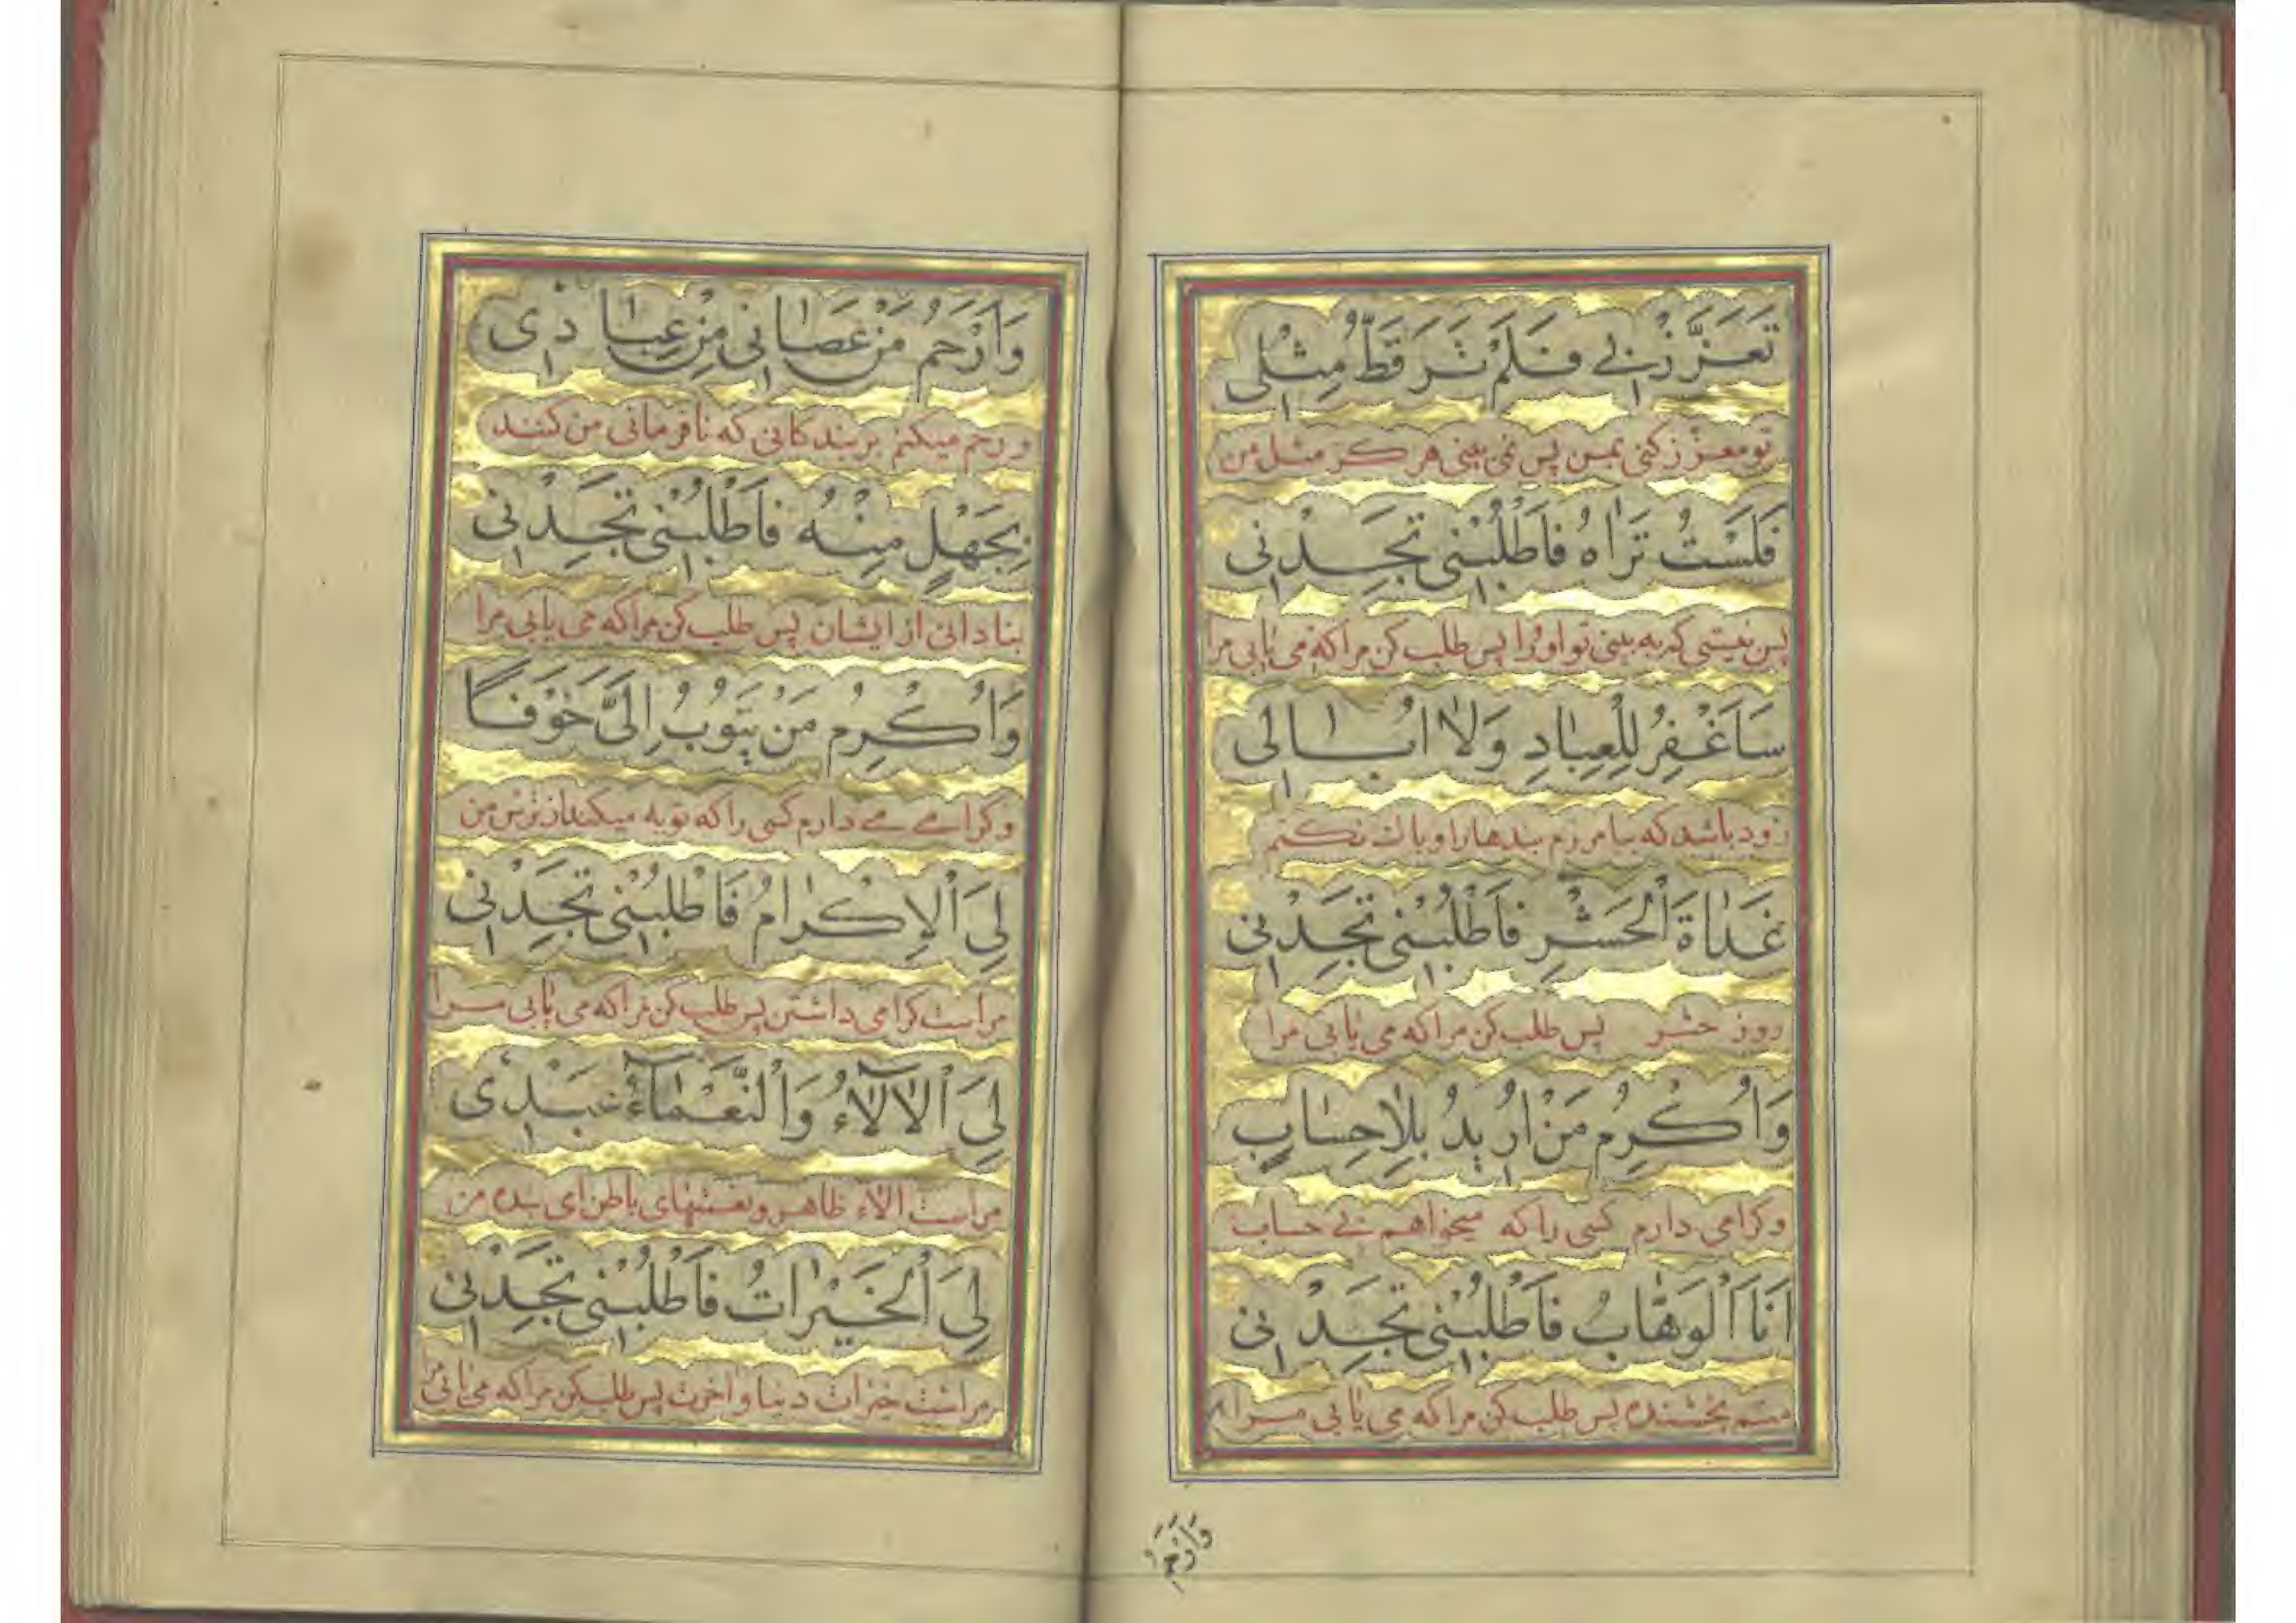 تَعَزَّزْ بٖى فَلَمْ تَرَ قَطُّ مِثْلٖى
تو معزز کنی بمن پس نمی بینی هر کز مثل من
فَلَسْتُ تَرٰاهُ فَاَطْلُبْنٖى تَجِدْنٖى
پس نیستی که به بینی تو او را پس طلب کن مرا که می یابی مرا
سَاَغْفِرُ لِلْعِبٰادِ وَلٰا اُبٰالٖى
زود باشد که بیامرزم بندها را و باک نکنم
غَدٰاةَ اَلْحَشْرِ فَاَطْلُبْنٖى تَجِدْنٖى
روز حشر پس طلب کن مرا که می یابی مرا
وَاُكْرِمُ مَنْ اُرٖيدُ بِلٰاحِسٰابٍ
و کرامی دارم کسی را که میخواهم بی حساب
اَنَا اَلْوَهّٰابُ فَاَطْلُبْنٖى تَجِدْنٖى
منم بخشنده پس طلب کن مرا که می یابی مرا
وَاَرْحَمُ
وَاَرْحَمُ مَنْ عَصٰانٖى مِنْ عِبٰادٖى
و رحم میکنم بر بندکانی که نافرمانی من کنند
بِجَهْلٍ مِنْهُ فَاَطْلُبْنٖى تَجِدْنٖى
بنادانی از ایشان پس طلب کن مرا که می یابی مرا
وَاُكْرِمُ مَنْ يَتُوبُ اِلَىَّ خَوْفًا
و کرامے مے دارم کسی را که توبه میکند از ترس من
لِىَ اَلْاِكْرٰامُ فَاَطْلُبْنٖى تَجِدْنٖى
مراست کرامی داشتن پس طلب کن مرا که می یابی مرا
لِىَ اَلْاٰلٰآءُ وَاَلنَّعْمٰآءُ عَبْدٖى
مراست الآء ظاهر و نعمتهای باطن ای بنده من
لِىَ اَلْخَيْرٰاتُ فَاَطْلُبْنٖى تَجِدْنٖى
مراست خیرات دنیا و اخرت پس طلب کن مرا که می یابی مرا